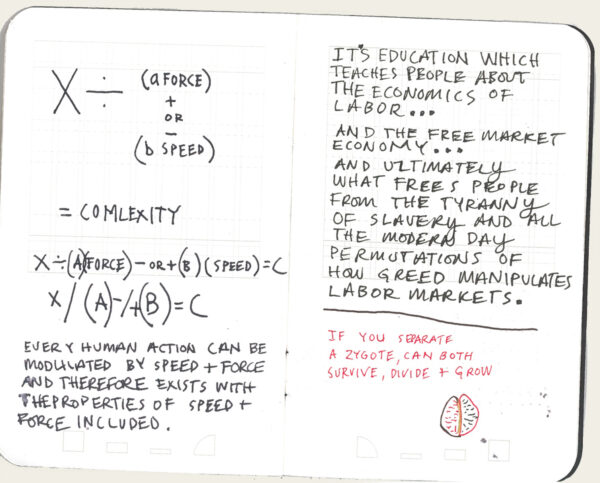 X ÷ (a FORCE)
+
OR
–
(b SPEED)
= COMLEXITY
X÷(A)(FORCE)– OR+(B)(SPEED)=C
X/(A)-/+(B)=C
EVERY HUMAN ACTION CAN BE
MODULATED BY SPEED + FORCE
AND THEREFORE EXISTS WITH
THE PROPERTIES OF SPEED +
FORCE INCLUDED.
IT'S EDUCATION WHICH
TEACHES PEOPLE ABOUT
THE ECONOMICS OF
LABOR...
AND THE FREE MARKET
ECONOMY...
AND ULTIMATELY
WHAT FREES PEOPLE
FROM THE TYRANNY
OF SLAVERY AND ALL
THE MODERN DAY
PERMUTATIONS OF
HOW GREED MANIPULATES
LABOR MARKETS.
IF YOU SEPARATE
A ZYGOTE, CAN BOTH
SURVIVE, DIVIDE + GROW